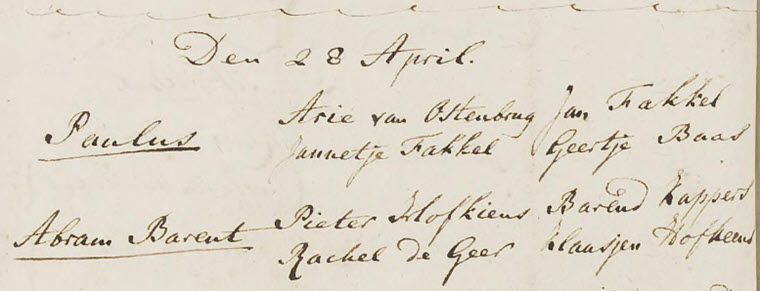 Den 28 April.
Paulus
Arie van Ostenbrug Jan Fakkel
Jannetje Fakkel Geertje Baas
Abram Barent
Pieter Hofkiens Barend Kappers
Rachel de Geer Klaasjen Hofkens